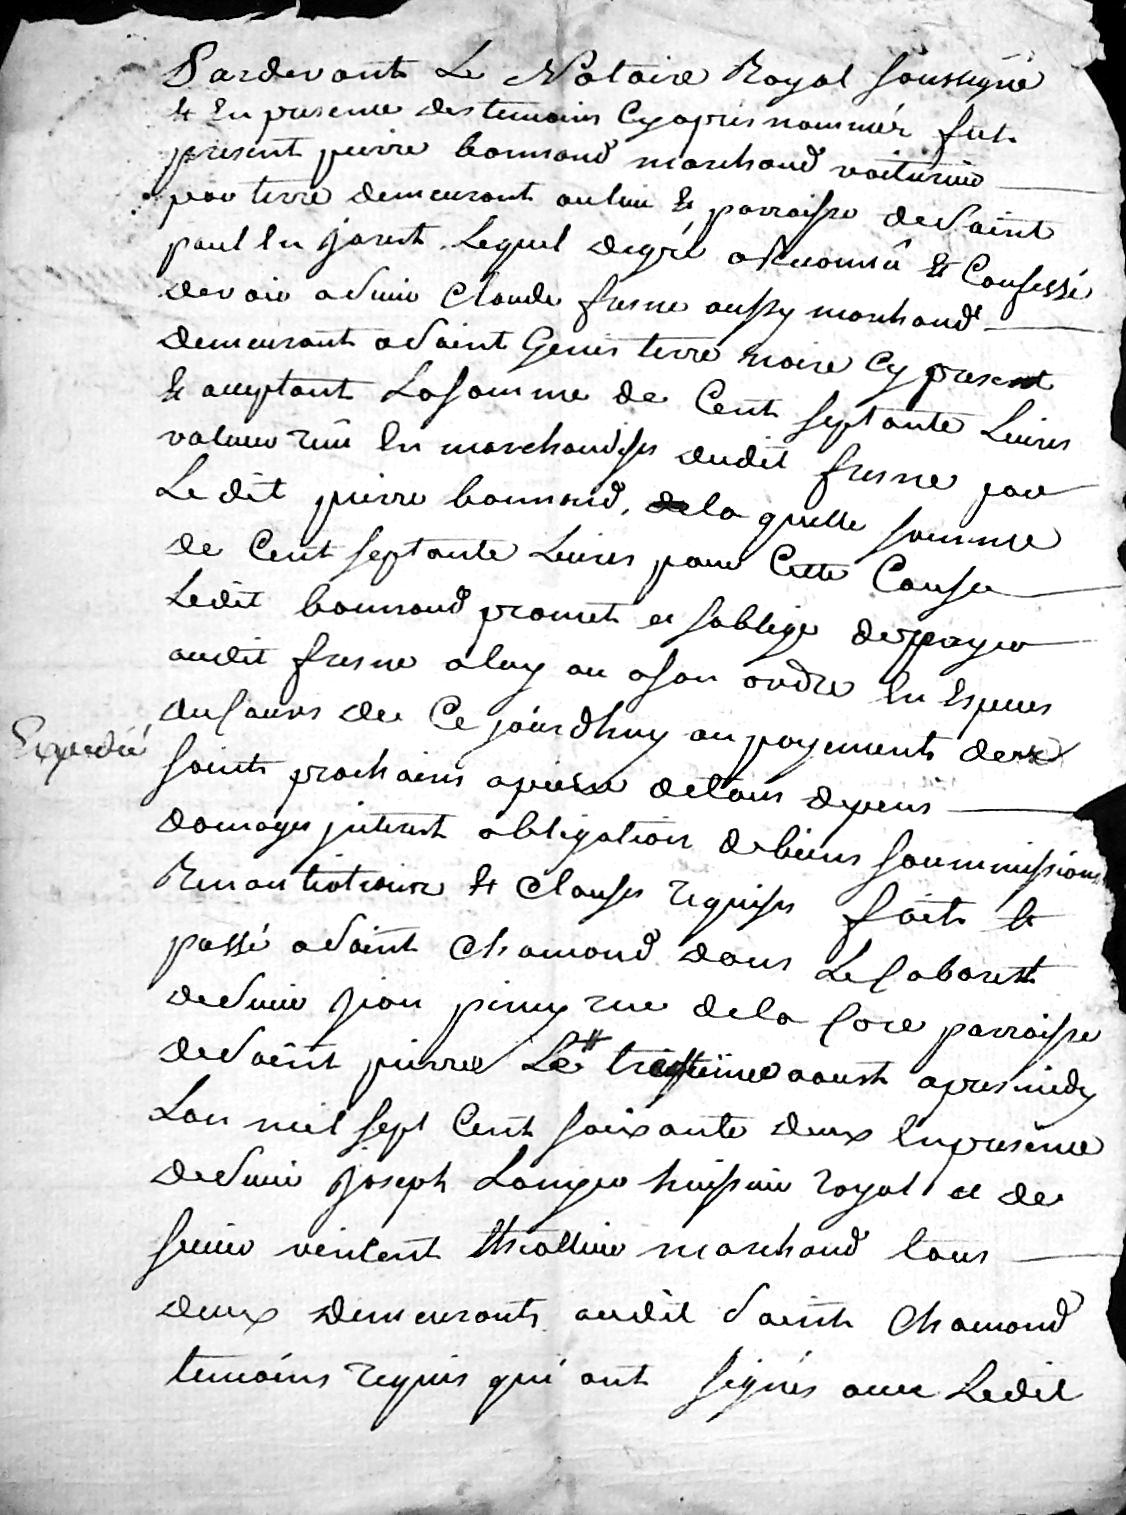 Pardevant Le Notaire Royal soussigné
& En presence des temoins Cyaprés nommés fut
present pierre bonnand marchand voiturier
par terre demeurant au lieu & parroisse de Saint
paul En Jarest Lequel de gré a Reconnû & Confessé
devoir a Sieur Claude fresne aussy marchand
demeurant a Saint Genis terre noire Cy present
& acceptant La Somme de Cent septante Livres
valeur reüe En marchandises dudit fresne par
Le dit pierre bonnand, de la quelle somme
de Cent septante Livres pour Cette Cause
Ledit bonnand promet et soblige de payer
audit fresne a luy ou a son ordre En Especes
du Cours de Ce jourdhuy au payements des
saints prochains a peine de tous depens
domages interest obligation de biens soummissions
Renontiations & Clauses requises fait &
passé a Saint Chamond dans Le Cabaret
de Sieur Jean piney rue de la fore parroisse
de Saint pierre Le aoust apres midy
Lan mil sept Cent soixante deux En presence
de Sieur Joseph Huissier royal et de
sieur vincent marchand tous
deux demeurants audit Saint Chamond
temoins requis qui ont signés avec Ledit
Expedié